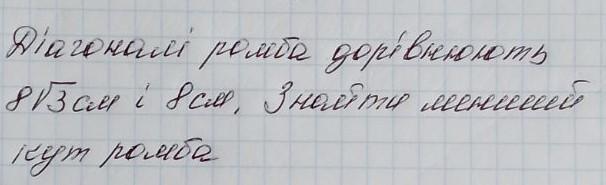 Діагоналі ромба дорівнюють
8√3 см і 8 см. Знайти менший
кут ромба